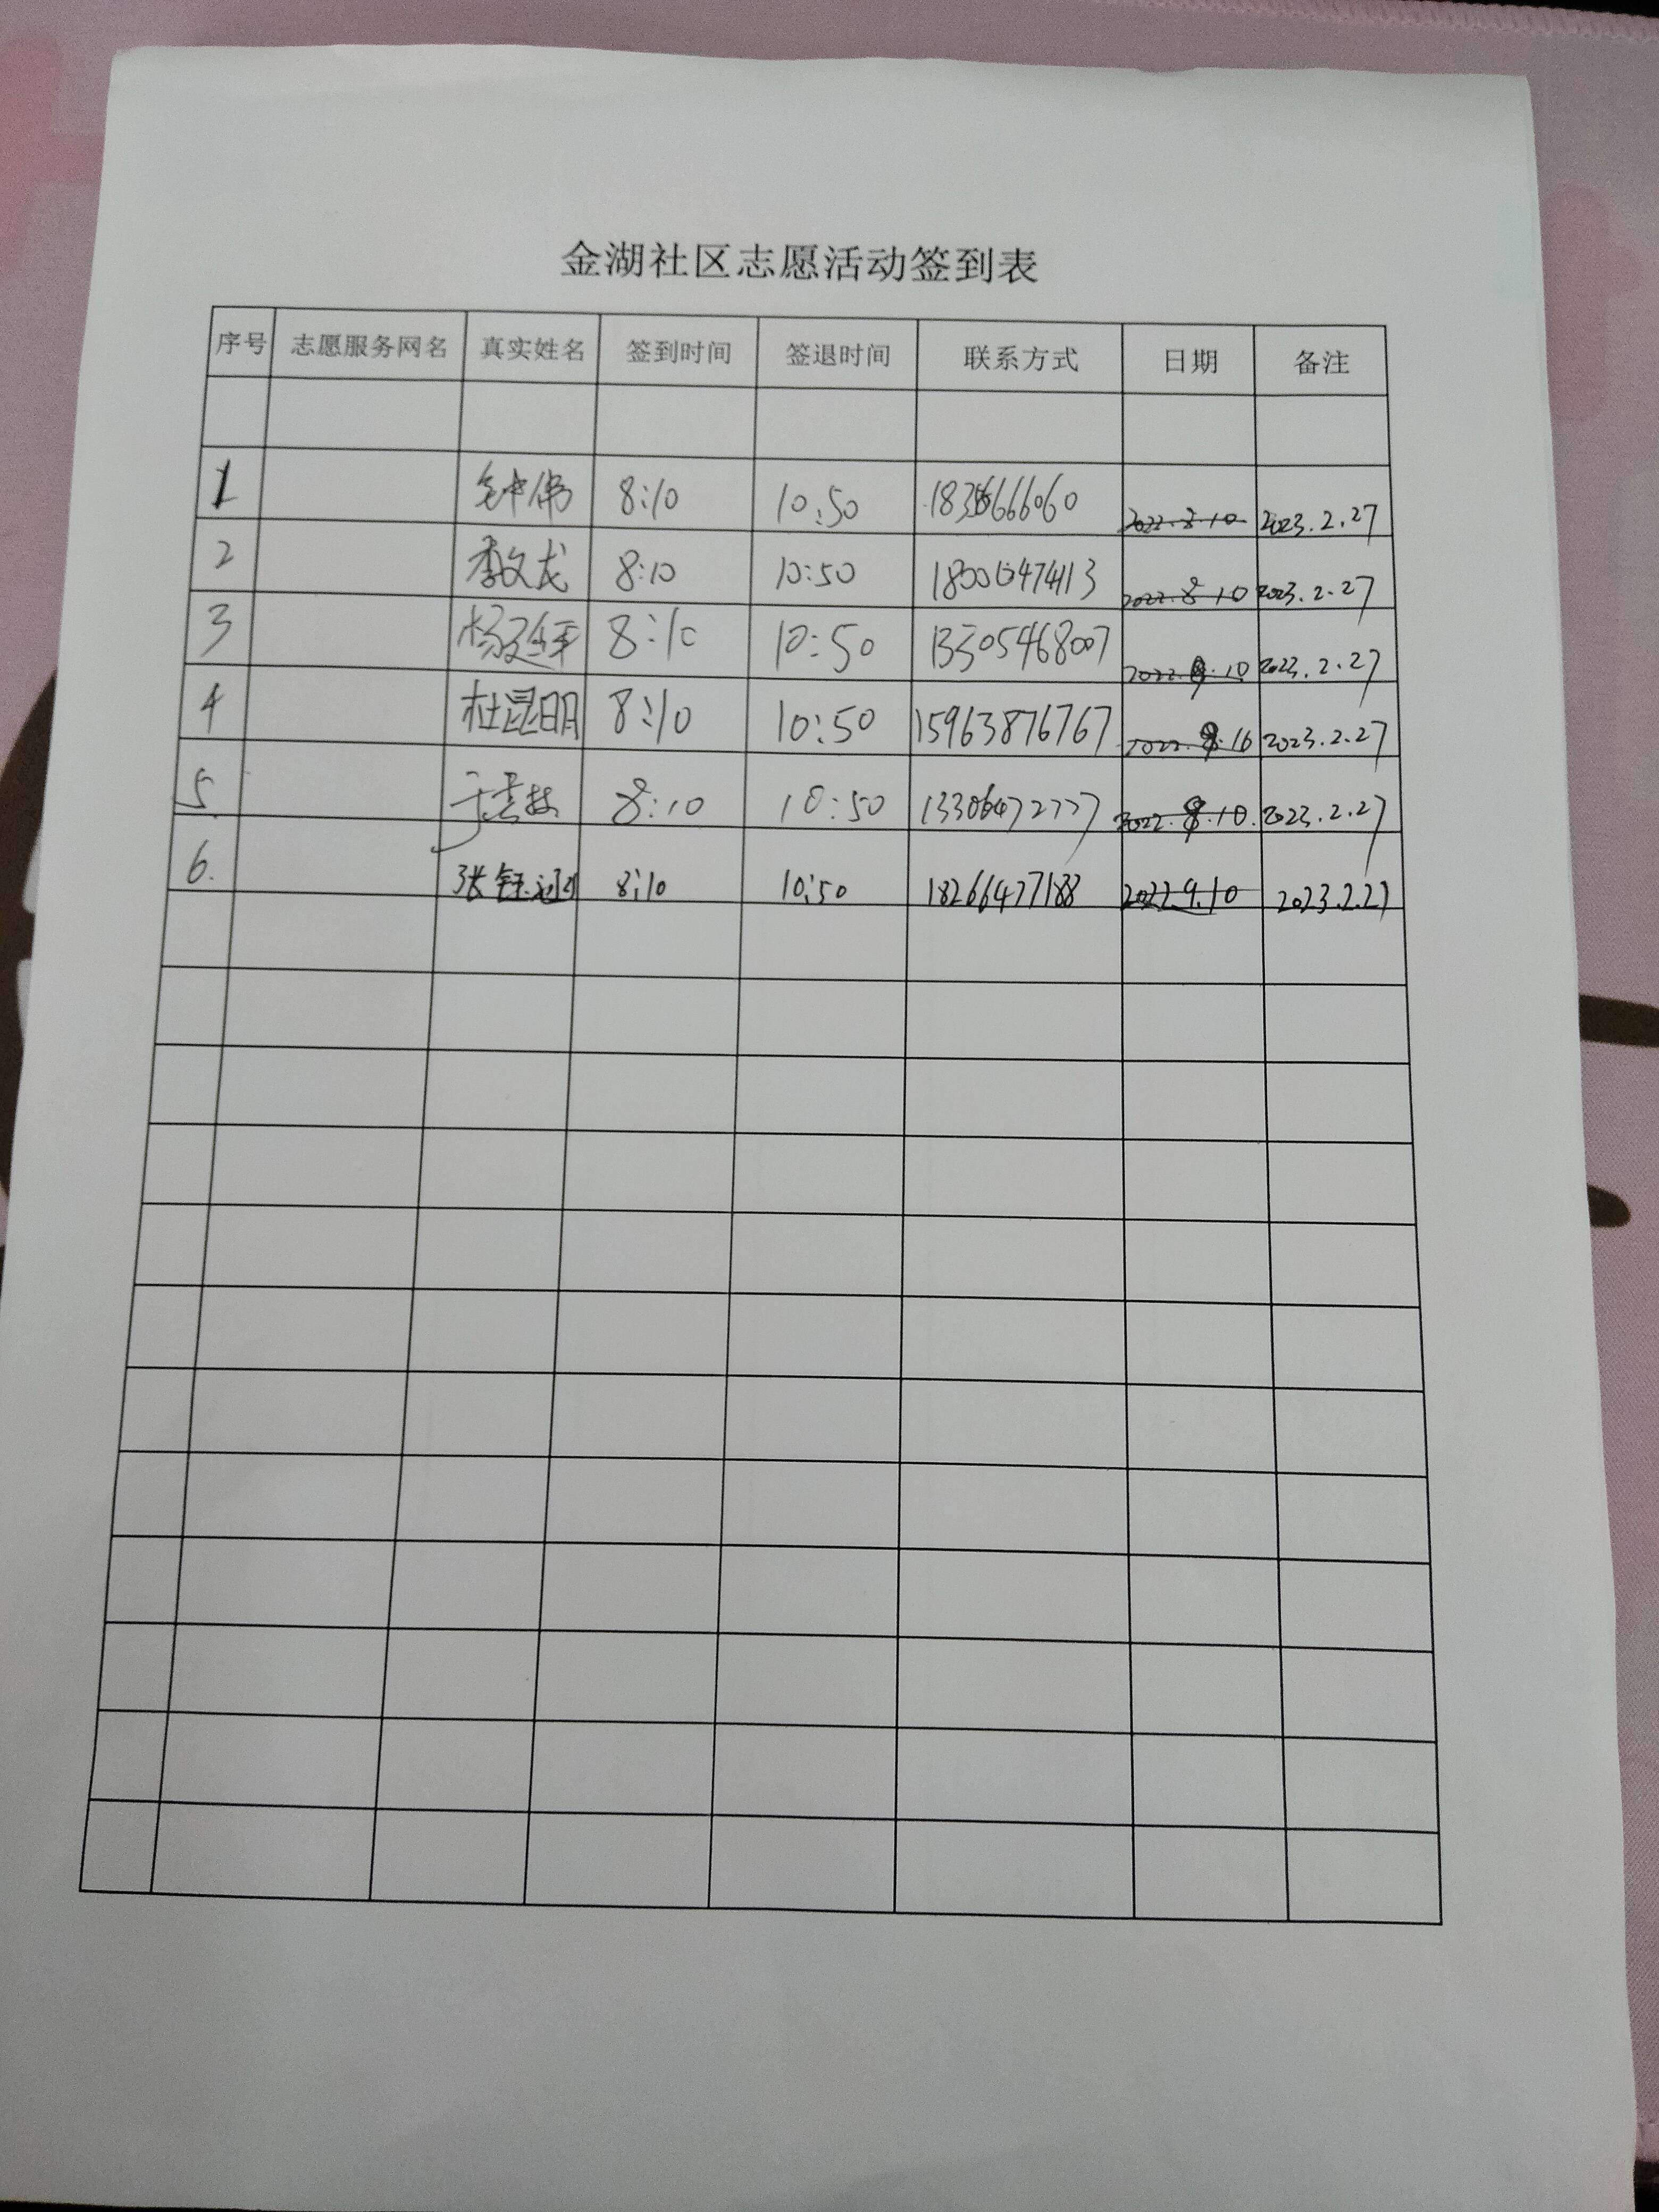 金湖社区志愿活动签到表
序号 志愿服务网名 真实姓名 签到时间 签退时间 联系方式 日期 备注
1 8:10 10:50 2022.8.10 2023.2.27
2 李文龙 8:10 10:50 2022.8.10 2023.2.27
3 8:10 10:50 13305468007 2022.9.10 2023.2.27
4 杜昆明 8:10 10:50 15963876767 2022.9.16 2023.2.27
5 8:10 10:50 2022.9.10. 2023.2.27
6. 张钰涵 8:10 10:50 18266477188 2022.9.10 2023.2.27